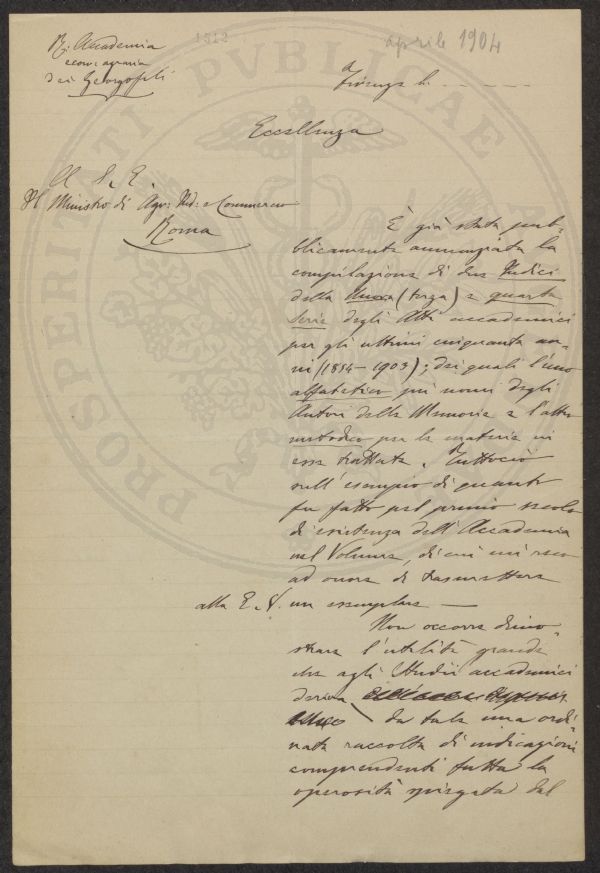 R. Accademia
econ: agraria
dei Georgofili
1512
aprile 1904
Firenze li
Eccellenza
A S. E.
Il Ministro di Agr: Ind: e Commercio
Roma
È già stata pub-
blicamente annunziata la
compilazione di due Indici
della Nuova (terza) e quarta
Serie degli Atti accademici
per gli ultimi cinquanta an-
ni (1854-1903); dei quali l'uno
alfabetico pei nomi degli
Autori delle Memorie e l'altro
metodico per le materie in
esse trattate. Tuttociò
sull'esempio di quanto
fu fatto pel primo secolo
di esistenza dell'Accademia
nel Volume, di cui mi reco
ad onore di trasmettere
alla E. V. un esemplare
Non occorre dimo-
strare l'utilità grande
che agli Studii accademici
deriva
da tale una ordi-
nata raccolta di indicazioni
comprendenti tutta la
operosità spiegata dal
PROSPERITATI PUBLICAE